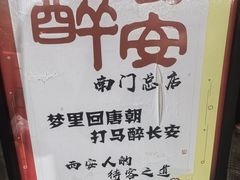 醉长安
南门总店
梦里回唐朝
打马醉长安
西安人的
待客之道